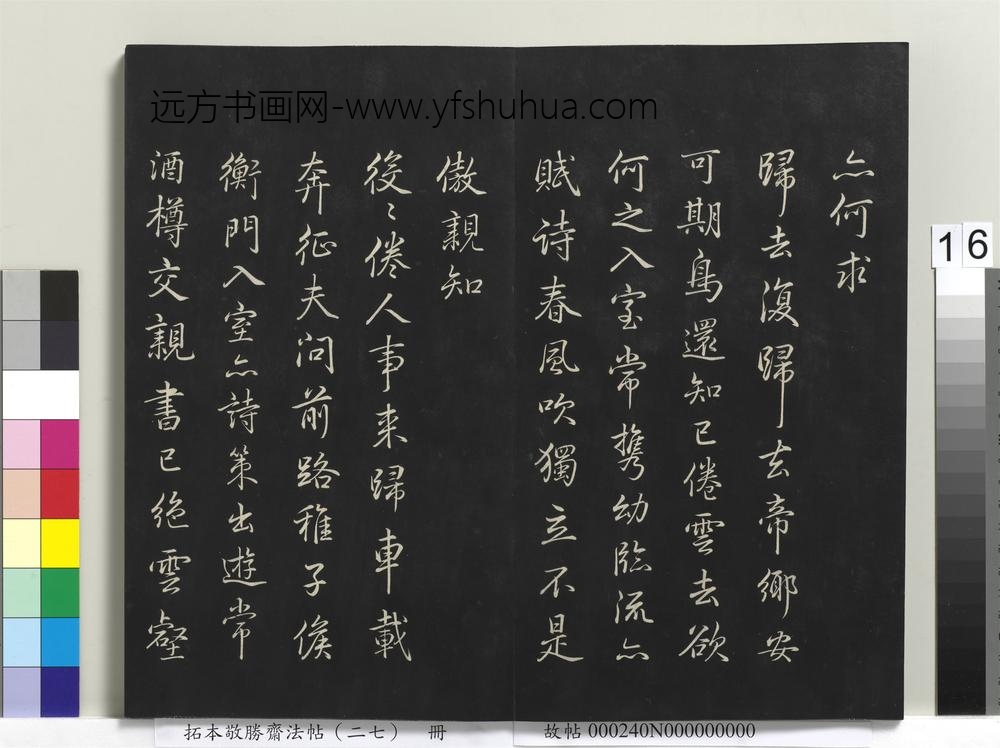 远方书画网-www.yfshuhua.com
亦何求
歸去復歸去帝鄉安
可期鳥還知已倦雲去欲
何之入室常携幼臨流亦
賦诗春風吹獨立不是
傲親知
役〻倦人事来歸車載
奔征夫问前路稚子候
衡門入室亦詩策出遊常
酒樽交親書已绝雲壑
16
拓本敬勝齋法帖（二七） 冊
故帖 000240N000000000